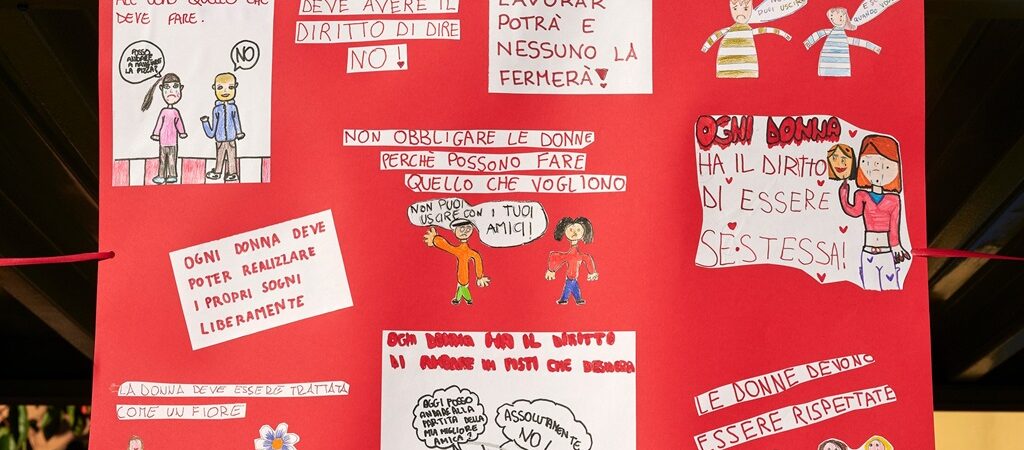 DEVE FARE.
POSSO
ANDARE A
MANGIARE
LA PIZZA?
NO
DEVE AVERE IL
DIRITTO DI DIRE
NO!
LAVORAR
POTRÀ E
NESSUNO LA
FERMERÀ!
PUOI USCIRE
QUANDO
NON OBBLIGARE LE DONNE
PERCHÈ POSSONO FARE
QUELLO CHE VOGLIONO
NON PUOI
USCIRE CON I TUOI
AMICI!
OGNI DONNA
HA IL DIRITTO
DI ESSERE
SÈ STESSA!
OGNI DONNA DEVE
POTER REALIZLARE
I PROPRI SOGNI
LIBERAMENTE
OGNI DONNA HA IL DIRITTO
DI ANDARE IN POSTI CHE DESIDERA
OGGI POSSO
ANDARE ALLA
PARTITA DELLA
MIA MIGLIORE
AMICA?
ASSOLUTAMENTE
NO!
LA DONNA DEVE ESSERE TRATTATA
COME UN FIORE
LE DONNE DEVONO
ESSERE RISPETTATE